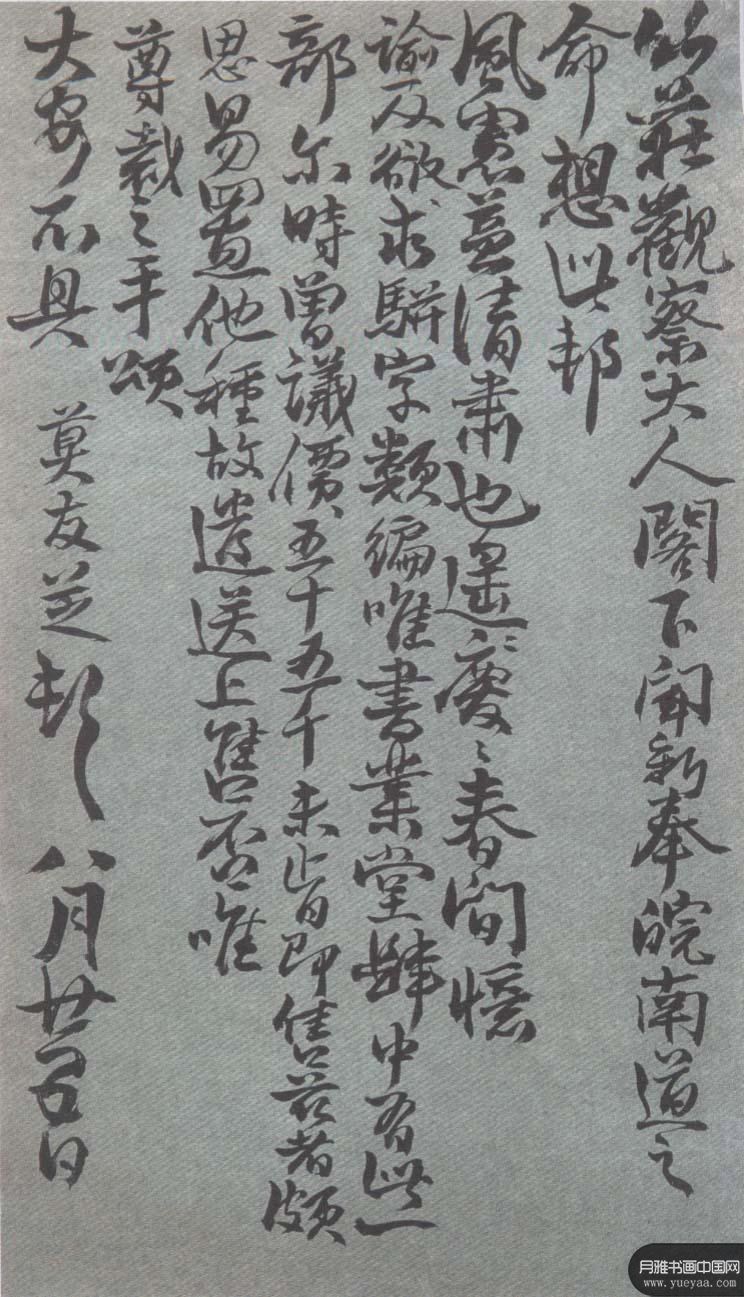 竹莊觀察大人閣下聞新奉皖南道之
命想此邦
風憲益清肅也遙慶慶春間憶
諭及欲求駢字類編唯書業堂肆中有此一
部尔時曾議價五十五千未肯即售茲者頗
思易置他種故遣送上售否唯
尊裁之手頌
大安不具 莫友芝頓 八月廿五日
月雅书画中国网
www.yueyaa.com